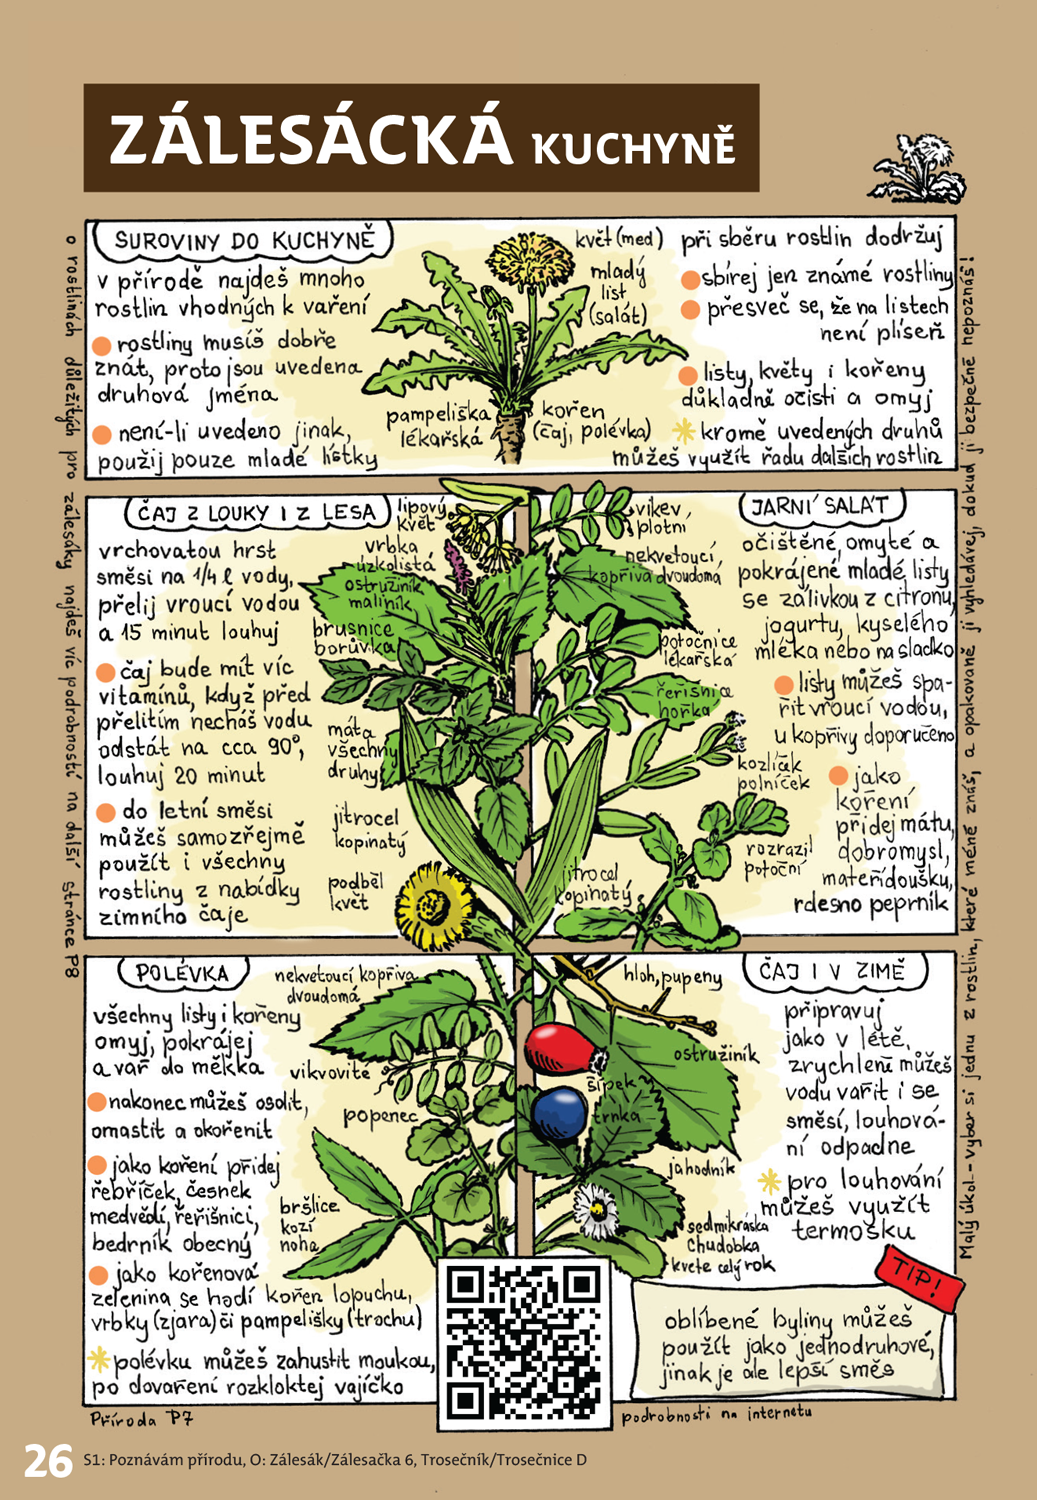 ZÁLESÁCKÁ KUCHYNĚ
SUROVINY DO KUCHYNĚ
v přírodě najdeš mnoho
rostlin vhodných k vaření
rostliny musíš dobře
znát, proto jsou uvedena
druhová jména
není-li uvedeno jinak,
použij pouze mladé lístky
květ (med)
mladý
list
(salát)
pampeliška
lékařská
kořen
(čaj, polévka)
při sběru rostlin dodržuj
sbírej jen známé rostliny
přesveč se, že na listech
není plíseň
listy, květy i kořeny
důkladně očisti a omyj
kromě uvedených druhů
můžeš využít řadu dalších rostlin
ČAJ Z LOUKY I Z LESA
vrchovatou hrst
směsi na 1/4 l vody,
přelij vroucí vodou
a 15 minut louhuj
čaj bude mít víc
vitamínů, když před
přelitím necháš vodu
odstát na cca 90°,
louhuj 20 minut
do letní směsi
můžeš samozřejmě
použít i všechny
rostliny z nabídky
zimního čaje
lipový
květ
vrbka
úzkolistá
ostružiník
maliník
brusnice
borůvka
máta
všechny
druhy
jitrocel
kopinatý
podběl
květ
vikev
plotní
nekvetoucí
kopřiva dvoudomá
potočnice
lékařská
řeřišnice
hořká
kozlíček
polníček
rozrazil
potoční
jitrocel
kopinatý
JARNÍ SALÁT
očištěné, omyté a
pokrájené mladé listy
se zálivkou z citronu,
jogurtu, kyselého
mléka nebo na sladko
listy můžeš spa-
řit vroucí vodou,
u kopřivy doporučeno
jako
koření
přidej mátu,
dobromysl,
mateřídoušku,
rdesno peprník
POLÉVKA
všechny listy i kořeny
omyj, pokrájej
a vař do měkka
nakonec můžeš osolit,
omastit a okořenit
jako koření přidej
řebříček, česnek
medvědí, řeřišnici,
bedrník obecný
jako kořenová
zelenina se hodí kořen lopuchu,
vrbky (zjara) či pampelišky (trochu)
polévku můžeš zahustit moukou,
po dovaření rozkloktej vajíčko
nekvetoucí kopřiva
dvoudomá
vikvovité
popenec
bršlice
kozí
noha
hloh, pupeny
ostružiník
šípek
trnka
jahodník
sedmikráska
chudobka
kvete celý rok
ČAJ I V ZIMĚ
připravuj
jako v létě,
zrychleně můžeš
vodu vařit i se
směsí, louhová-
ní odpadne
pro louhování
můžeš využít
termosku
TIP!
oblíbené byliny můžeš
použít jako jednodruhové,
jinak je ale lepší směs
o rostlinách důležitých pro zálesáky najdeš víc podrobností na další stránce P8
Malý úkol - vyber si jednu z rostlin, které méně znáš, a opakovaně ji vyhledávej, dokud ji bezpečně nepoznáš!
Příroda P7
podrobnosti na internetu
26 S1: Poznávám přírodu, O: Zálesák/Zálesačka 6, Trosečník/Trosečnice D